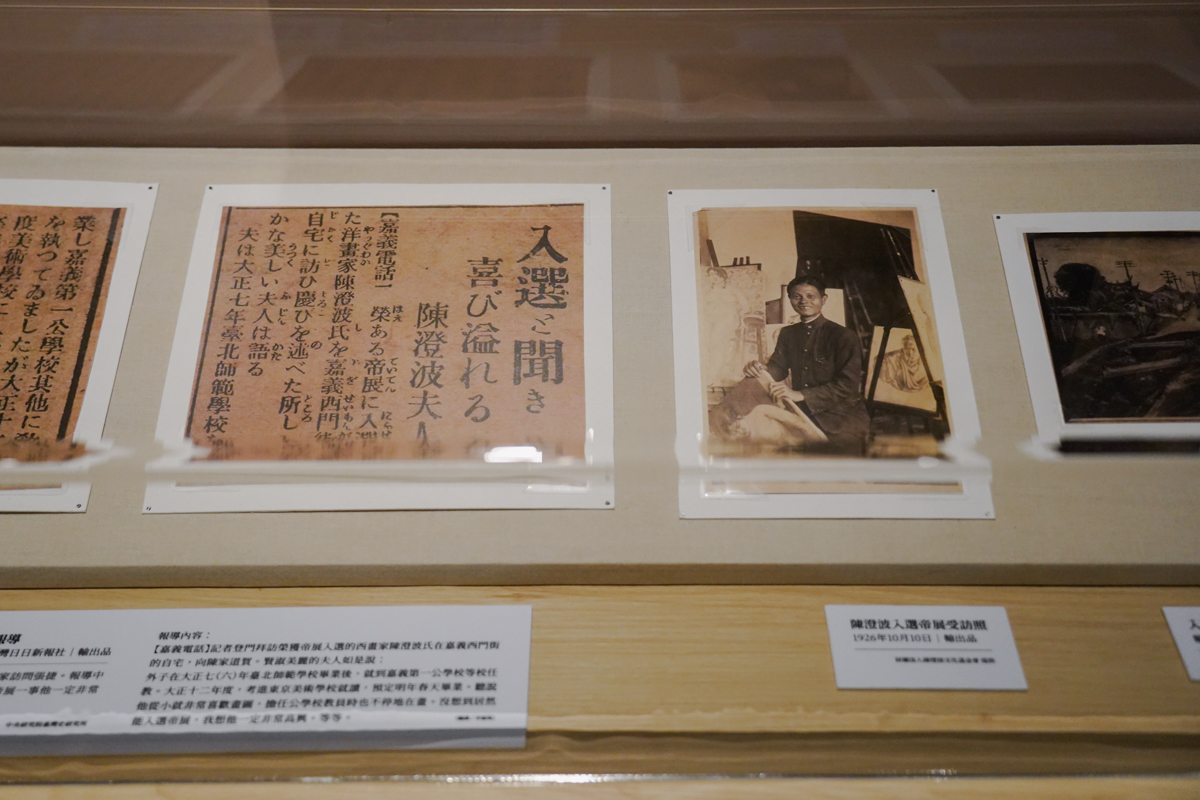 入選と聞き
喜び溢れる
陳澄波夫人
【嘉義電話】榮ある帝展に入選
た洋畫家陳澄波氏を嘉義西門街
自宅に訪ひ慶びを述べた所し
かな美しい夫人は語る
夫は大正七年臺北師範學校
業し嘉義第一公學校其他に
を執つてゐましたが大正十
度美術學校に
報導
灣日日新報社｜輸出品
家訪問張捷。報導中
帝展一事他一定非常
中央研究院臺灣史研究所
報導內容：
【嘉義電話】記者登門拜訪榮獲帝展入選的西畫家陳澄波氏在嘉義西門街
的自宅，向陳家道賀。賢淑美麗的夫人如是說：
外子在大正七(六)年臺北師範學校畢業後，就到嘉義第一公學校等校任
教。大正十二年度，考進東京美術學校就讀，預定明年春天畢業。聽說
他從小就非常喜歡畫圖，擔任公學校教員時也不停地在畫。沒想到居然
能入選帝展，我想他一定非常高興。等等。
陳澄波入選帝展受訪照
1926年10月10日｜輸出品